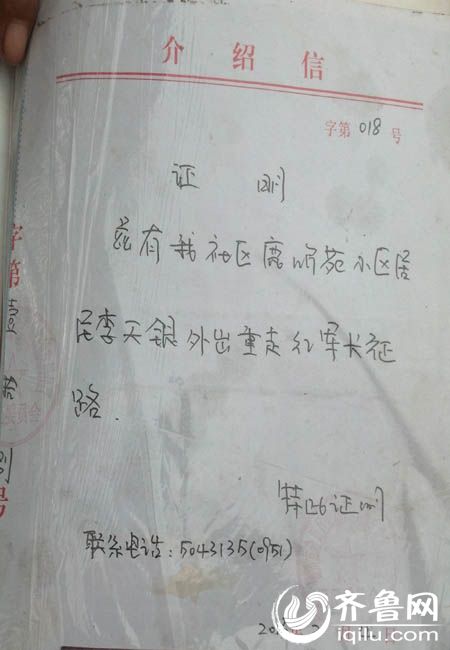 介绍信
字第018号
证 明
兹有我社区鹿鸣苑小区居
民李天银外出重走红军长征
路.
特此证明
联系电话：5043135(0951)
字第
号
齐鲁网
iqilu.com